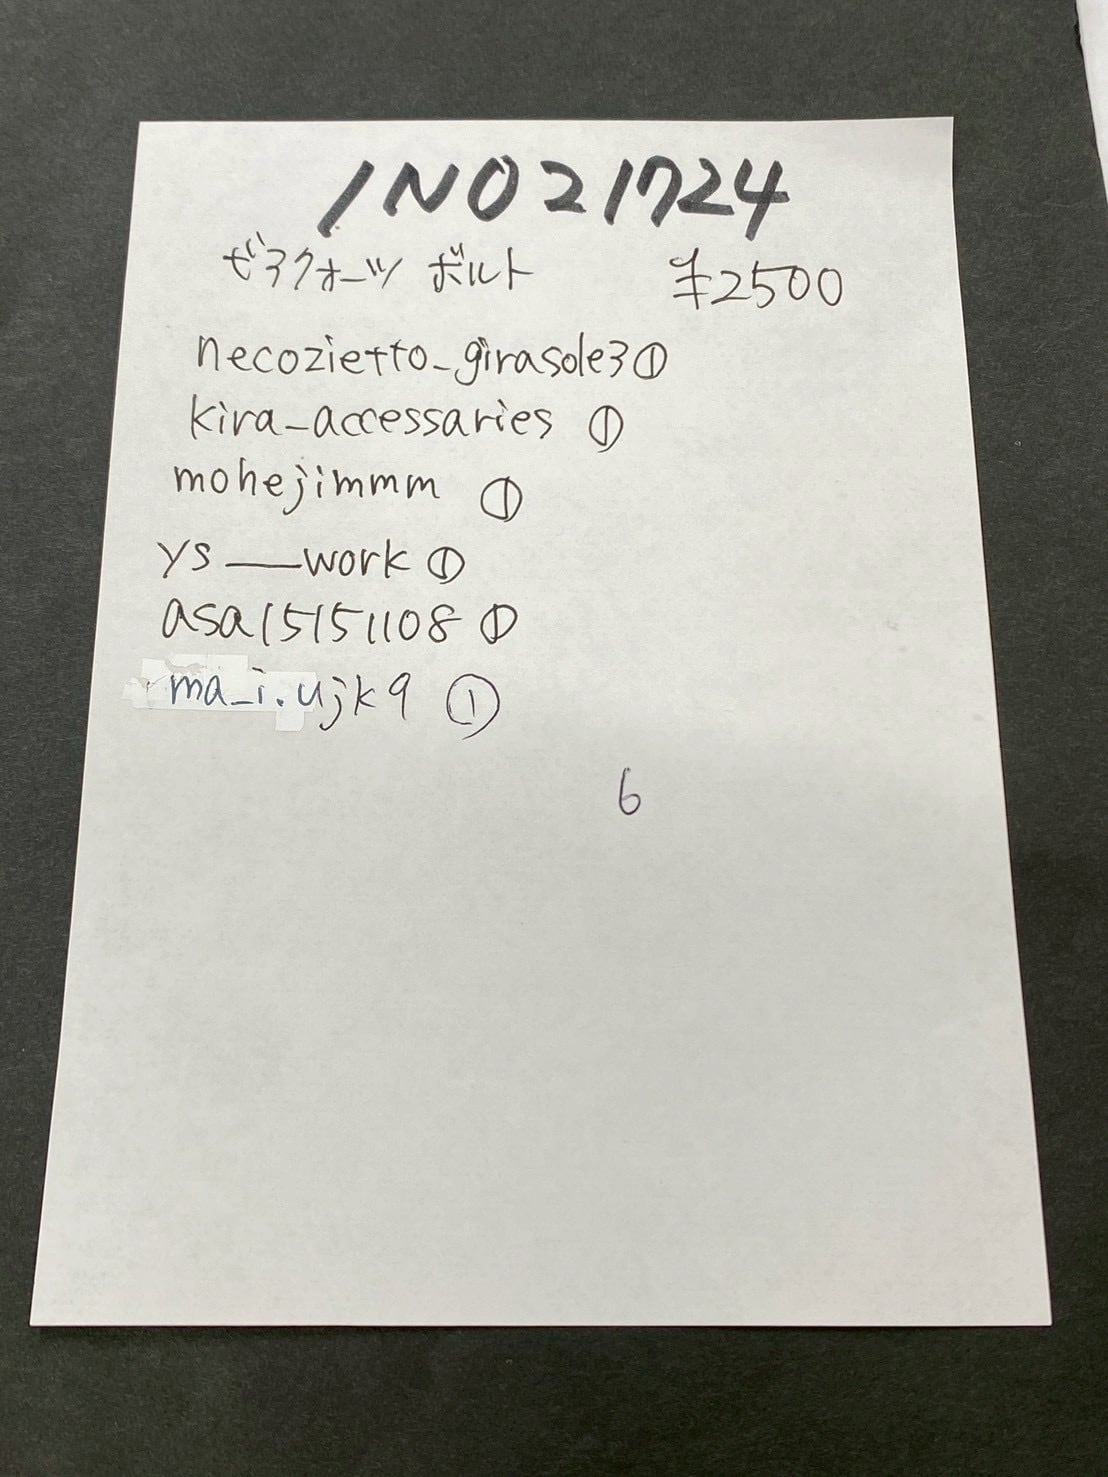 INO21724
ゼアクォーツ ボルト ¥2500
necozietto_girasole3①
kira_accessaries ①
mohejimmm ①
ys__work ①
asa15151108 ①
ma_i.ujk9 ①
6